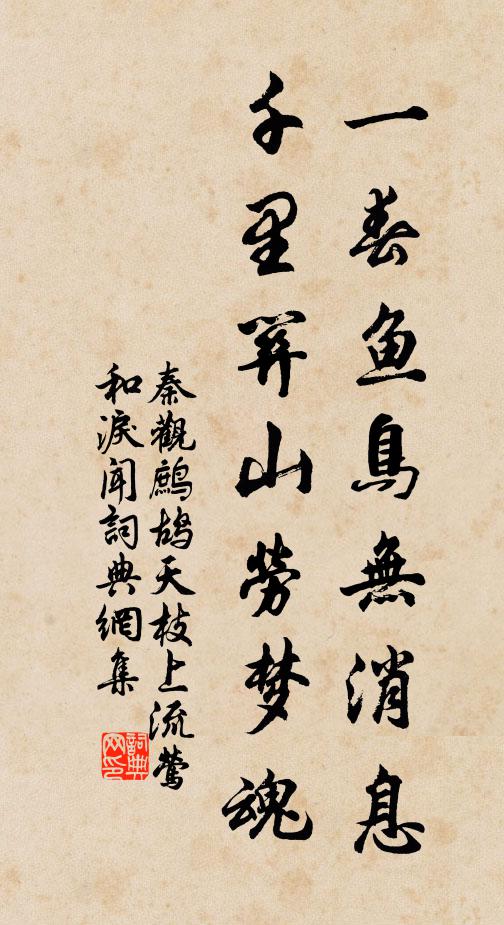 一春鱼鳥無消息
千里关山勞梦魂
秦觀鷓鴣天枝上流鶯
和淚聞詞典網集
詞典
网印